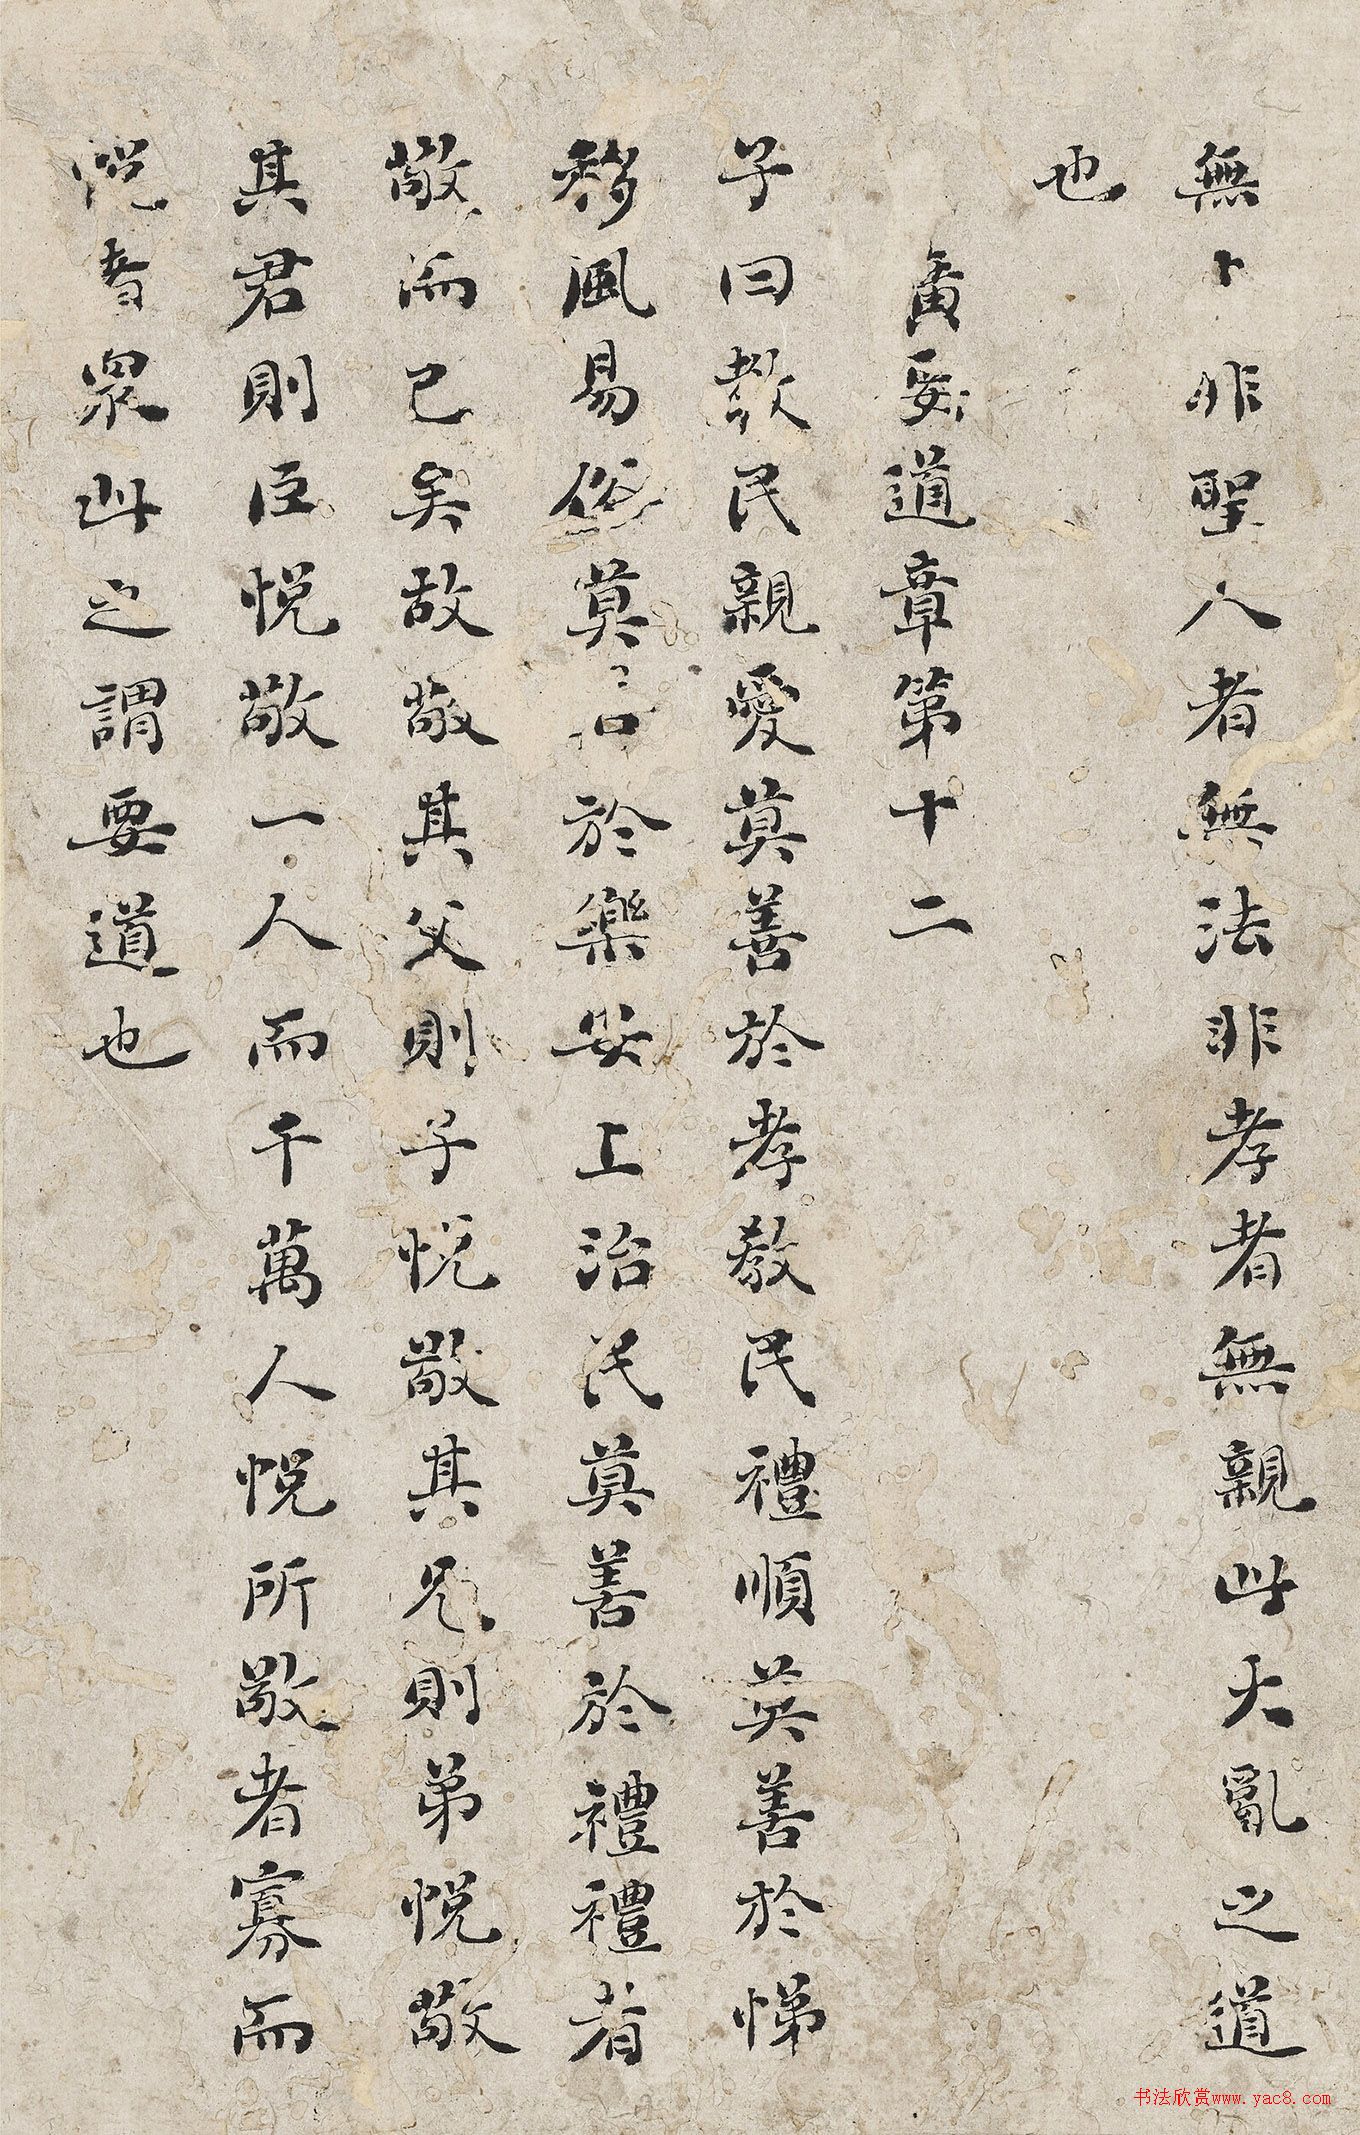 無上非聖人者無法非孝者無親此大亂之道
也
廣要道章第十二
子曰教民親愛莫善於孝教民禮順莫善於悌
移風易俗莫善於樂安上治民莫善於禮禮者
敬而已矣故敬其父則子悅敬其兄則弟悅敬
其君則臣悅敬一人而千萬人悅所敬者寡而
悅者眾此之謂要道也
书法欣赏www.yac8.com